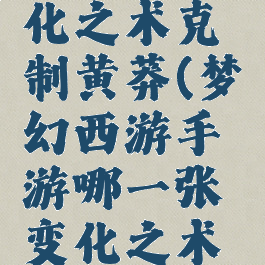 化之术克
制黄莽(梦
幻西游手
游哪一张
变化之术